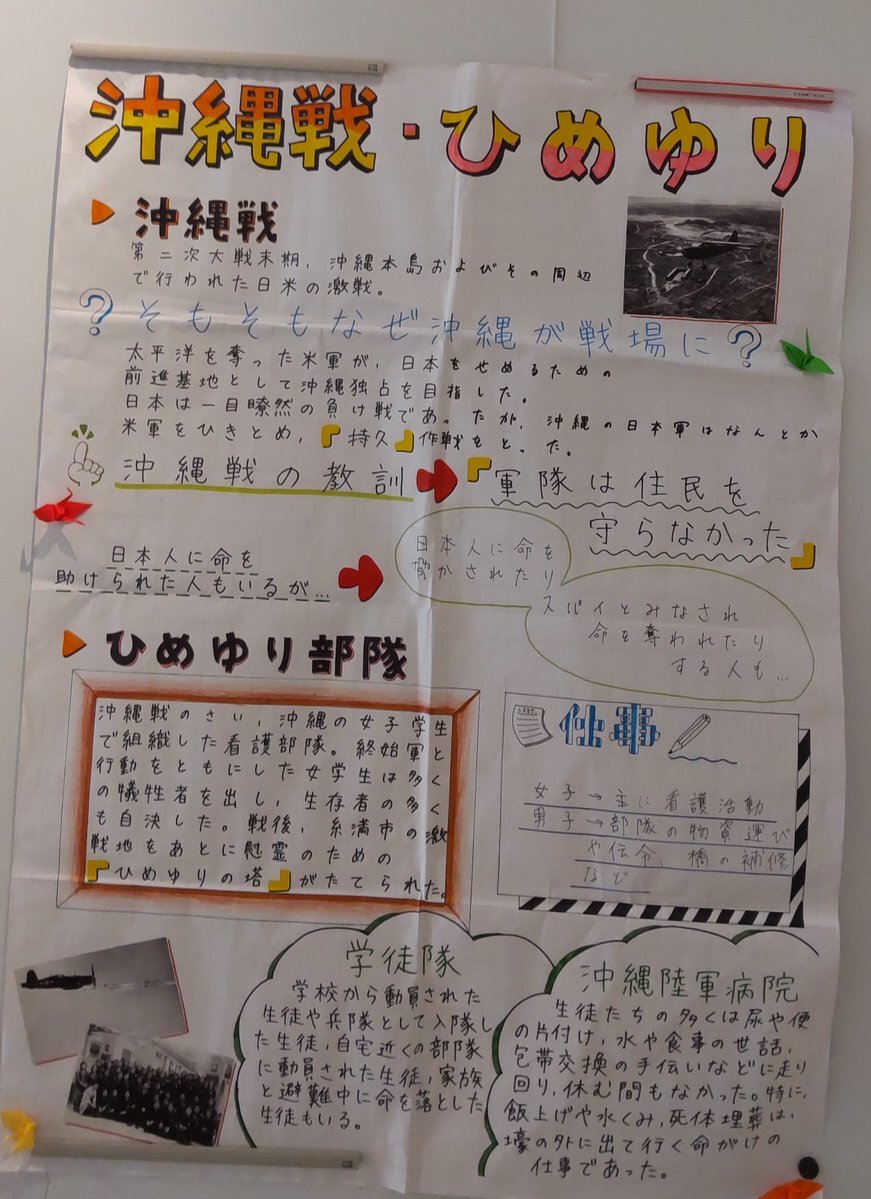 沖縄戦・ひめゆり
沖縄戦
第二次大戦末期，沖縄本島およびその周辺
で行われた日米の激戦。
？そもそもなぜ沖縄が戦場に？
太平洋を奪った米軍が，日本をせめるための
前進基地として沖縄独占を目指した。
日本は一目瞭然の負け戦であったが，沖縄の日本軍はなんとか
米軍をひきとめ，『持久』作戦をとった。
沖縄戦の教訓
『軍隊は住民を
守らなかった』
日本人に命を
助けられた人もいるが…
日本人に命を
脅かされたり
スパイとみなされ
命を奪われたり
する人も…
ひめゆり部隊
沖縄戦のさい，沖縄の女子学生
で組織した看護部隊。終始軍と
行動をともにした女学生は多く
の犠牲者を出し，生存者の多く
も自決した。戦後，糸満市の激
戦地をあとに慰霊のための
『ひめゆりの塔』がたてられた。
LIST
仕事
女子→主に看護活動
男子→部隊の物資運び
や伝令、橋の補修
など
学徒隊
学校から動員された
生徒や兵隊として入隊し
た生徒，自宅近くの部隊
に動員された生徒，家族
と避難中に命を落とした
生徒もいる。
沖縄陸軍病院
生徒たちの多くは尿や便
の片付け，水や食事の世話，
包帯交換の手伝いなどに走り
回り，休む間もなかった。特に，
飯上げや水くみ，死体埋葬は，
壕の外に出て行く命がけの
仕事であった。